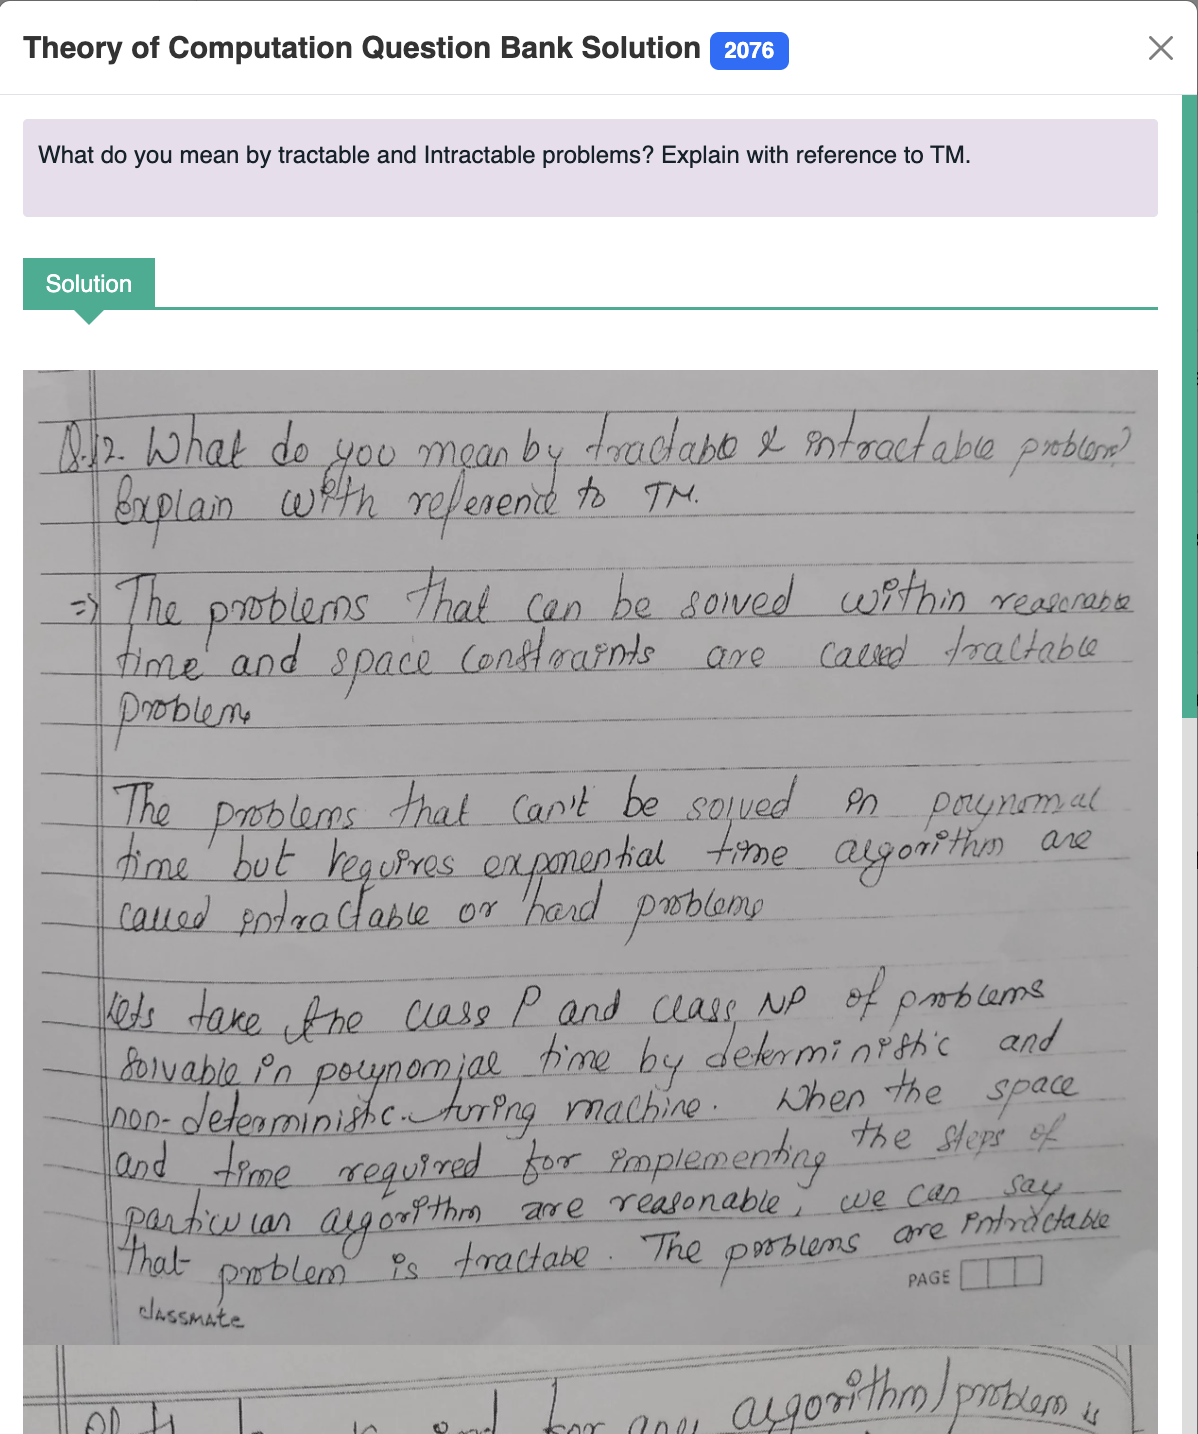 Theory of Computation Question Bank Solution 2076
What do you mean by tractable and Intractable problems? Explain with reference to TM.
Solution
Q.12. What do you mean by tractable & intractable problem?
Explain with reference to TM.
=> The problems that can be solved within reasonable
time and space constraints are called tractable
problem.
The problems that can't be solved in polynomial
time but requires exponential time algorithm are
called intractable or hard problems
Lets take the class P and class NP of problems
solvable in polynomial time by deterministic and
non-deterministic turing machine. When the space
and time required for implementing the steps of
particular algorithm are reasonable, we can say
that problem is tractabe. The problems are intractable
PAGE
classmate
for any algorithm/problem is